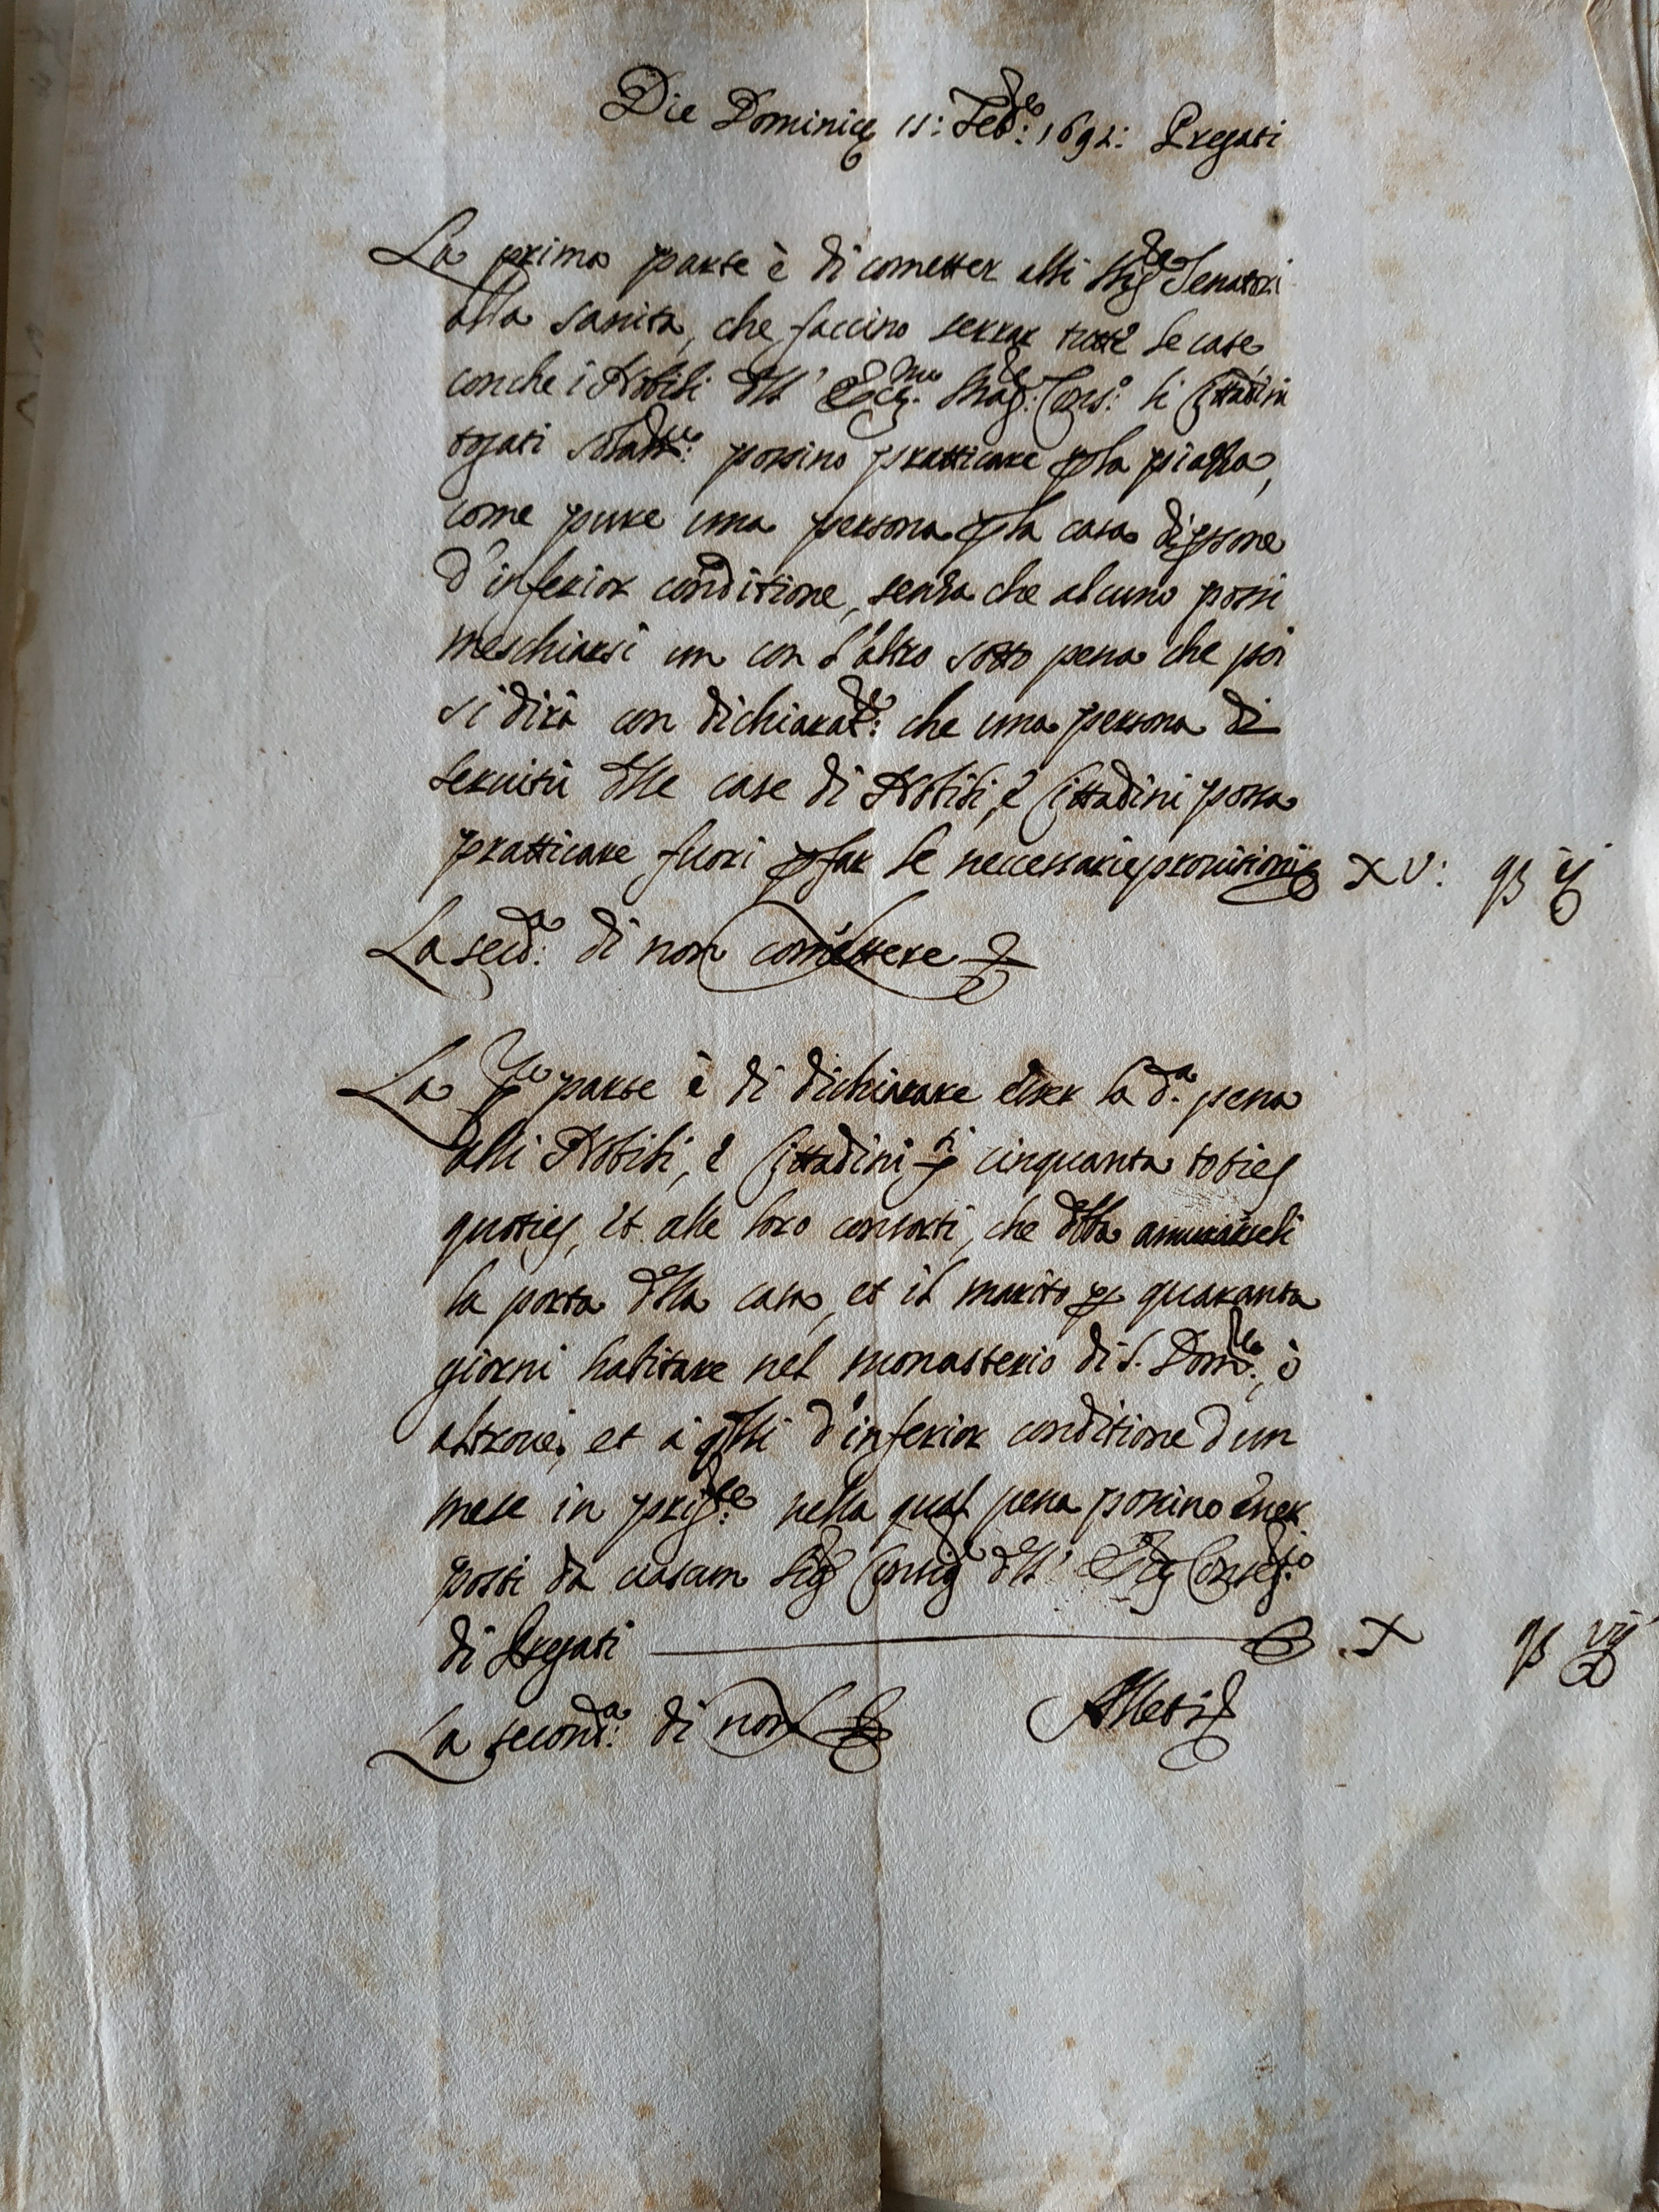 Die Dominicę 11: Feb:ro 1691: Pregati
La prima parte è di cometter alli Sig:ri Senatori
alla sanità, che faccino serrar tutte le case,
con che i Nobili dll' Ecc:mo Mag:r Cons:o li Cittadini
togati solam:te possino pratticare p la piazza,
come pure una persona p la casa di psone
d'inferior conditione, senza che alcuno possi
meschiarsi un con l'altro sotto pena che poi
si dirà con dichiarat:ne che una persona di
seruitù dlle case di Nobili, e Cittadini possa
pratticare fuori p far le neccessarie prouisioni X V: ij
La secd:a di non comettere
La parte è di dichiarare esser la d:a pena
alli Nobili, e Cittadini cinquanta toties
quoties, et alle loro consorti, che dbba amurarseli
la porta dlla casa, et il marito p quaranta
giorni habitare nel monasterio di S. Dom:co, ò
altroue, et à qlli d'inferior conditione d'un
mese in prig:ne nella qual pena possino esser
posti da ciascun Sig Consig:r dll' Ecc Conseg:o
di Pregati X vij
La second:a di non